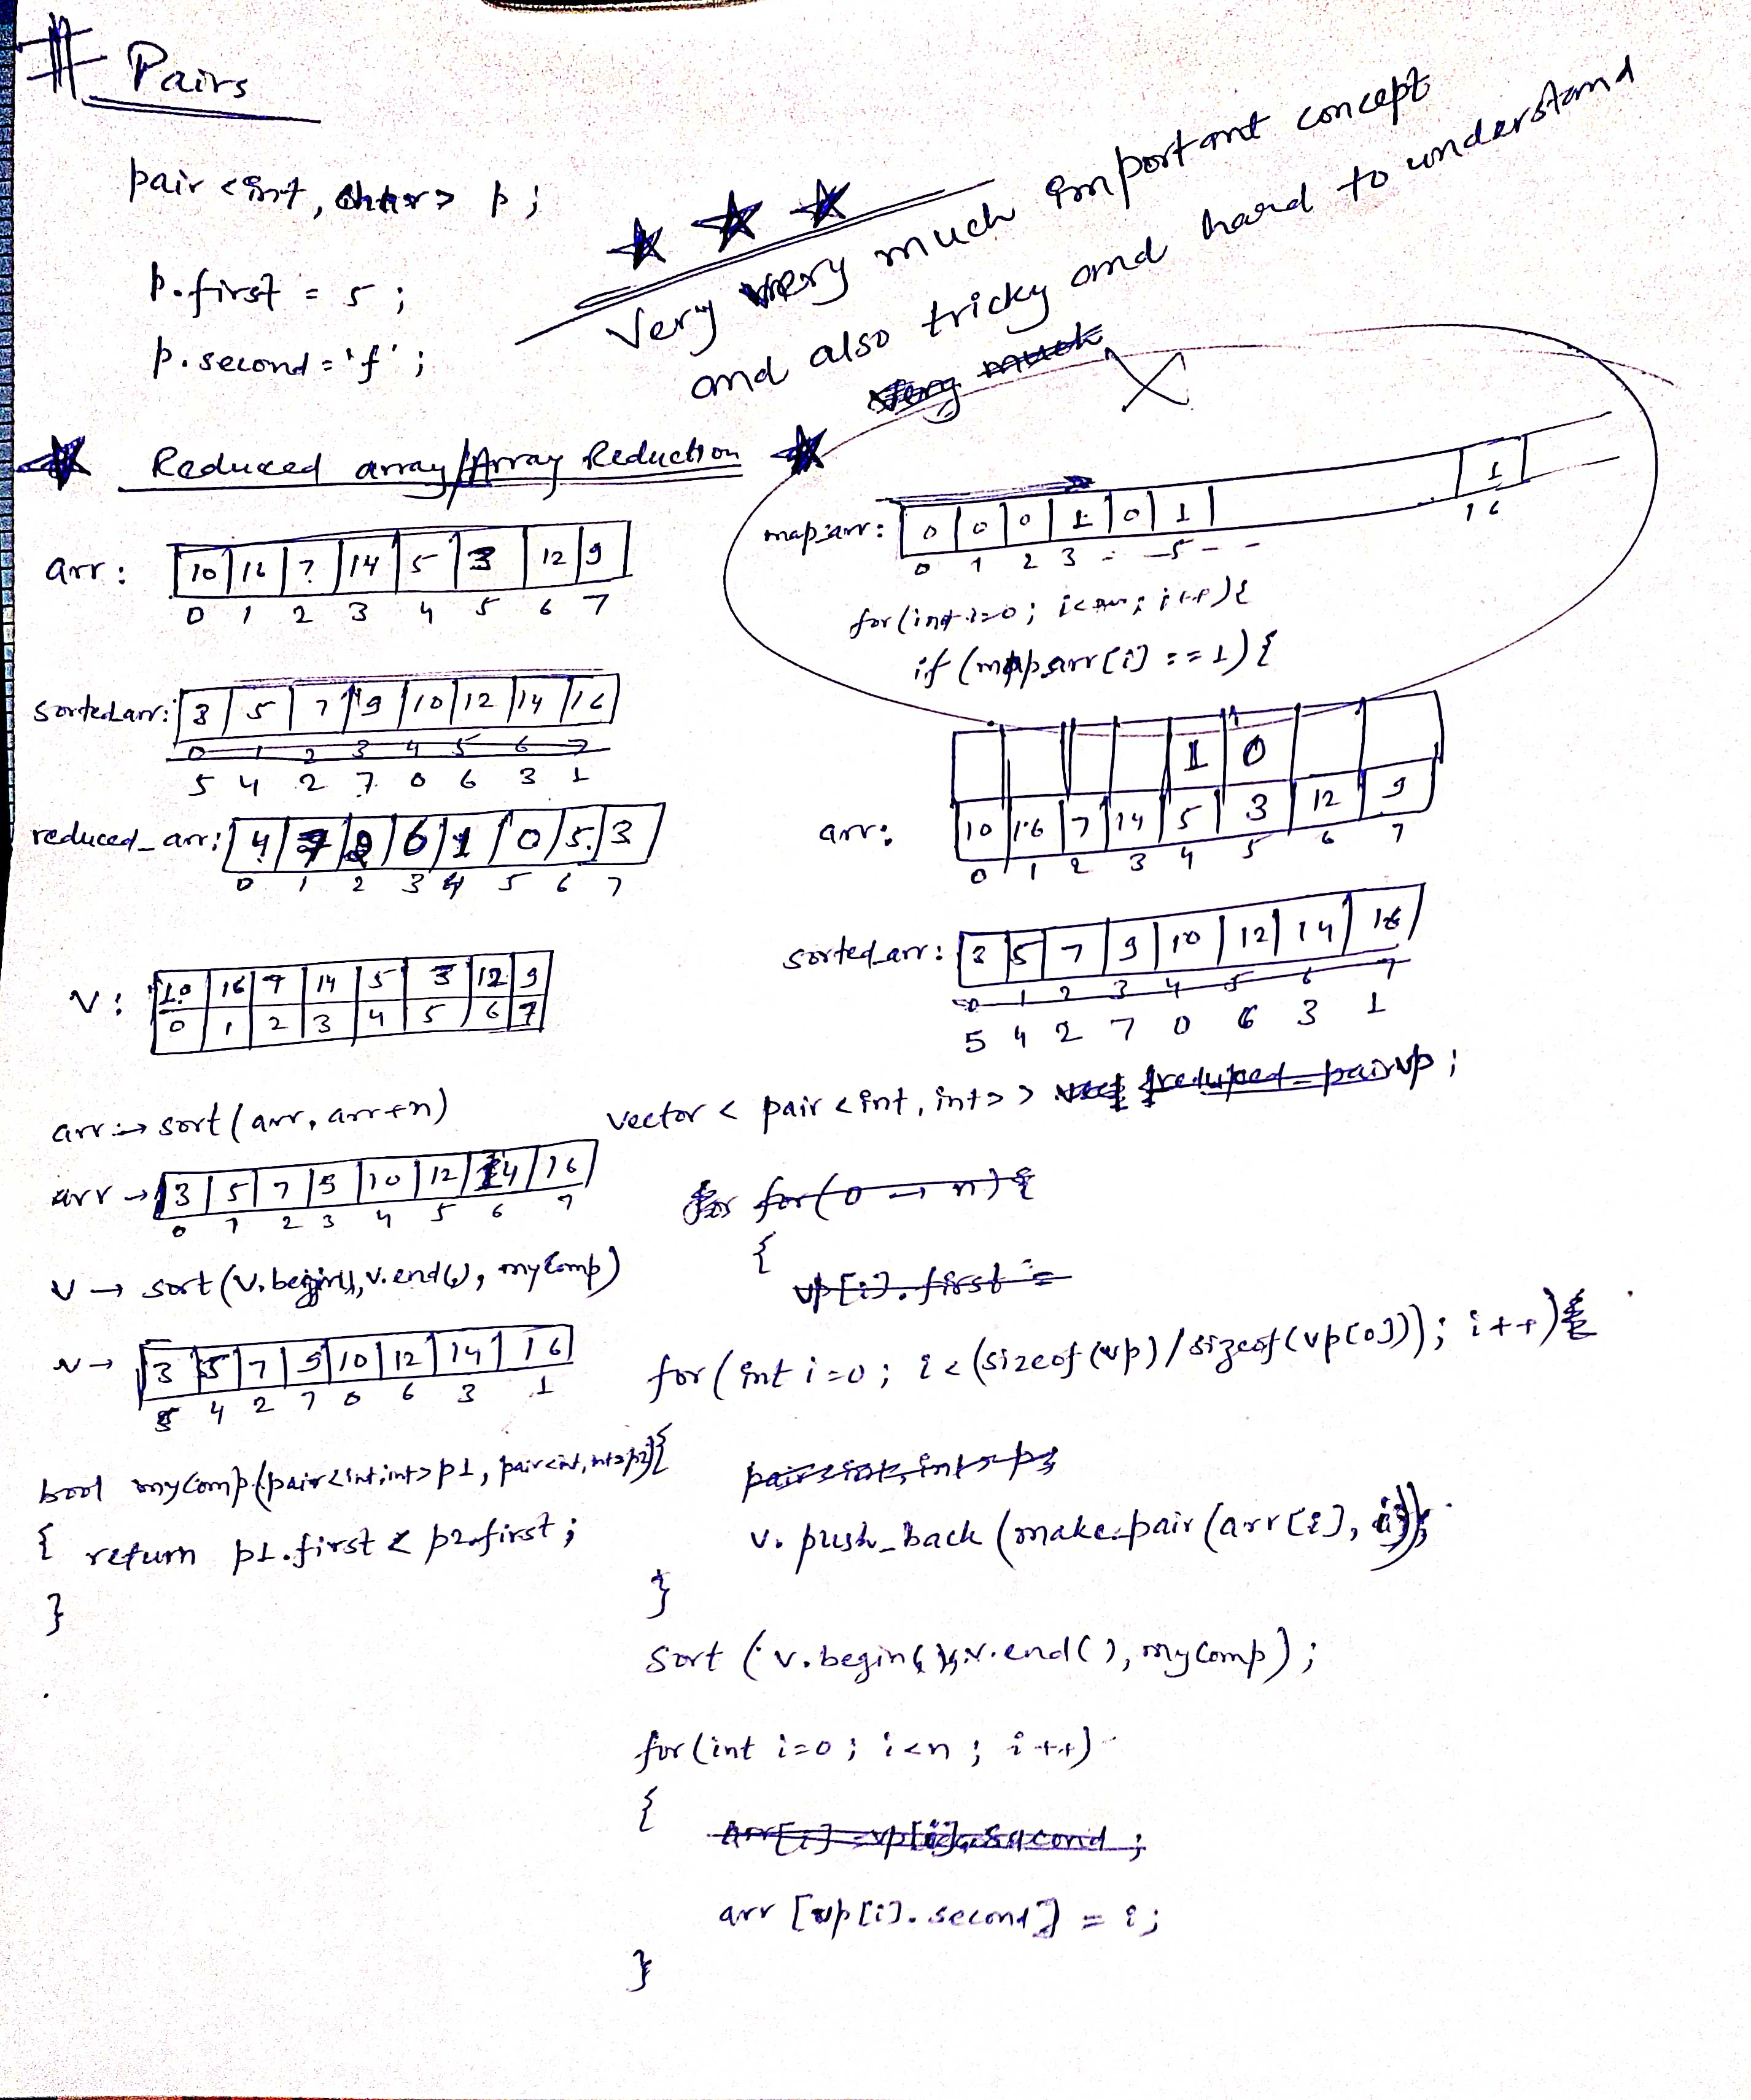 # Pairs
pair <int, char> p;
p.first = 5;
p.second = 'f';
Very very much important concept
and also tricky and hard to understand
Very much
Reduced array/Array Reduction
arr: 10 16 7 14 5 3 12 9
0 1 2 3 4 5 6 7
sorted_arr: 3 5 7 9 10 12 14 16
0 1 2 3 4 5 6 7
5 4 2 7 0 6 3 1
reduced_arr: 4 7 2 6 1 0 5 3
0 1 2 3 4 5 6 7
map_arr: 0 0 0 1 0 1 1
0 1 2 3 - - 5 - - 16
for(int i=0; i< ; i++){
if (map_arr[i] == 1) {
1 0
arr: 10 16 7 14 5 3 12 9
0 1 2 3 4 5 6 7
sorted_arr: 3 5 7 9 10 12 14 16
0 1 2 3 4 5 6 7
5 4 2 7 0 6 3 1
v: 10 16 7 14 5 3 12 9
0 1 2 3 4 5 6 7
arr → sort(arr, arr+n)
arr → 3 5 7 9 10 12 14 16
0 1 2 3 4 5 6 7
v → sort(v.begin(), v.end(), myComp)
v → 3 5 7 9 10 12 14 16
5 4 2 7 0 6 3 1
bool myComp(pair<int,int> p1, pair<int,int> p2){
{ return p1.first < p2.first;
}
vector < pair <int, int> > reduced_pair vp;
for for(0 → n){
{
vp[i].first =
for(int i=0; i<(sizeof(vp)/sizeof(vp[0])); i++){
pair<int, int> p;
v.push_back(make_pair(arr[i], i));
}
sort (v.begin(), v.end(), myComp);
for(int i=0; i<n; i++)
{
arr[i] = vp[i].second;
arr [vp[i].second] = i;
}